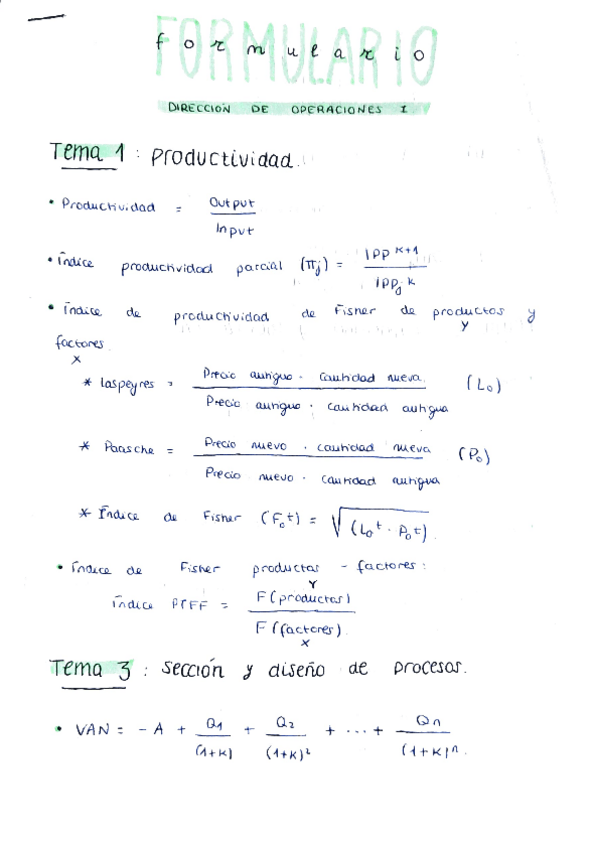 FORMULARIO
formulario
DIRECCIÓN DE OPERACIONES I
Tema 1: Productividad.
• Productividad = Output / Input
• Índice productividad parcial (πj) = IPP K+1 / IPPj K
• Índice de productividad de Fisher de productos y
Y
factores
X
* Laspeyres = Precio antiguo · Cantidad nueva / Precio antiguo · cantidad antigua (L₀)
* Paasche = Precio nuevo · cantidad nueva / Precio nuevo · cantidad antigua (P₀)
* Índice de Fisher (F₀t) = √(L₀t · P₀t)
• Índice de Fisher productos - factores:
Y
Índice PTFF = F(productos) / F(factores)
X
Tema 3: sección y diseño de procesos.
• VAN = - A + Q1 / (1+K) + Q2 / (1+K)² + ... + Qn / (1+K)ⁿ.